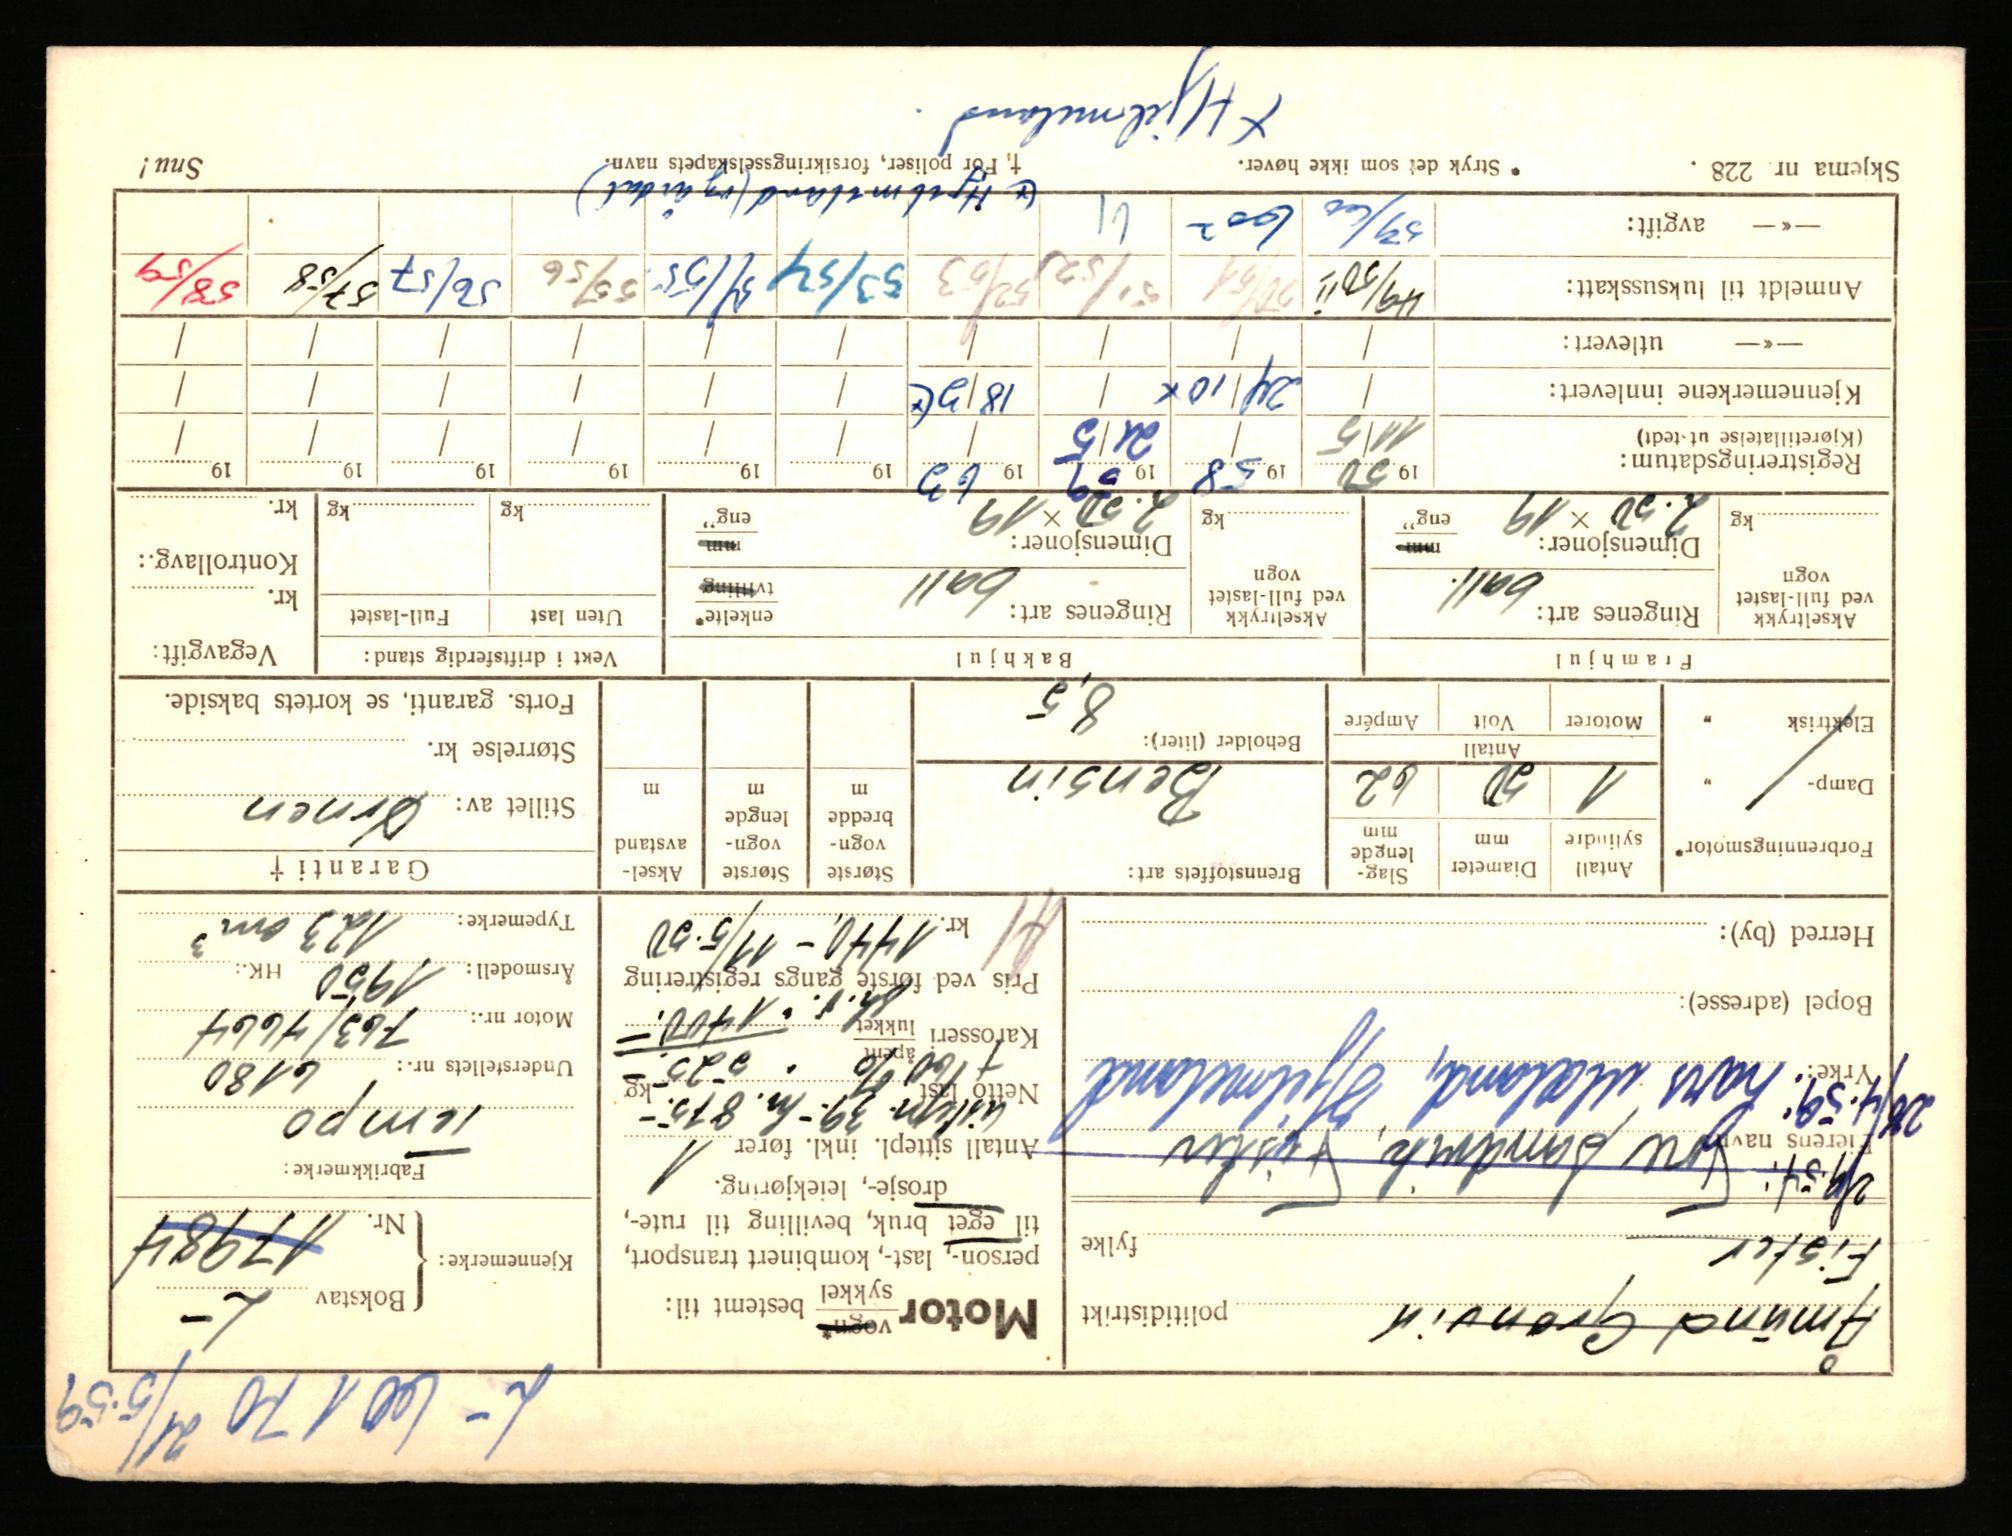 L- 60170 21/5-59
Åmund Grønvik politidistrikt
Fister fylke
2/9.54: Tore Sandvik, Fister
Eierens navn
28/4.59: Lars Mæland, Hjelmeland
Yrke:
Bopel (adresse):
Herred (by):
Motor vogn* sykkel bestemt til:
person-, last-, kombinert transport,
til eget bruk, bevilling til rute-,
drosje-, leiekjøring.
Antall sittepl. inkl. fører 1
Netto last kg
39.- kr. 875.-
+ 60 % " 525.-
" 1400.-
Karosseri åpent lukket
Pris ved første gangs registrering
kr. 1440,- 11/5.50
Kjennemerke: Bokstav L-
Nr. 17984
Fabrikkmerke:
Tempo
Understellets nr.: 6180
Motor nr.: 763/4664
Årsmodell: 1950 HK.:
Typemerke: 123 cm³
Forbrenningsmotor*
Damp- "
Elektrisk "
Antall sylindre 1
Diameter mm 50
Slag-lengde mm 62
Antall
Motorer Volt Ampére
Brennstoffets art:
Bensin
Beholder (liter):
8,5
Største vogn-bredde m
Største vogn-lengde m
Aksel-avstand m
Garanti †
Stillet av: Ørnen
Størrelse kr.
Forts. garanti, se kortets bakside.
Framhjul
Akseltrykk ved full-lastet vogn kg
Ringenes art: ball.
Dimensjoner: mm
2.50 × 19 eng"
Bakhjul
Akseltrykk ved full-lastet vogn kg
Ringenes art: ball enkelte* tvilling
Dimensjoner: mm
2.50 × 19 eng"
Vekt i driftsferdig stand:
Uten last Full-lastet
kg kg
Vegavgift:
kr.
Kontrollavg.:
kr.
Registreringsdatum: 19 50 19 58 19 59 19 63 19 19 19 19 19 19
(Kjøretillatelse ut-tedt) 11/5 / 21/5 / / / / / / /
Kjennemerkene innlevert: / 24/10 x / 18/3 (x / / / / / /
—«— utlevert: / / / / / / / / / /
Anmeldt til luksusskatt: 49/50 50/51 51/52 52/53 53/54 54/55 55/56 56/57 57/58 58/59
—«— avgift: 59/60
(x Hjelmeland (og Årdal)
Skjema nr. 228. * Stryk det som ikke høver. †, For poliser, forsikringsselskapets navn. Snu!
x Hjelmeland.